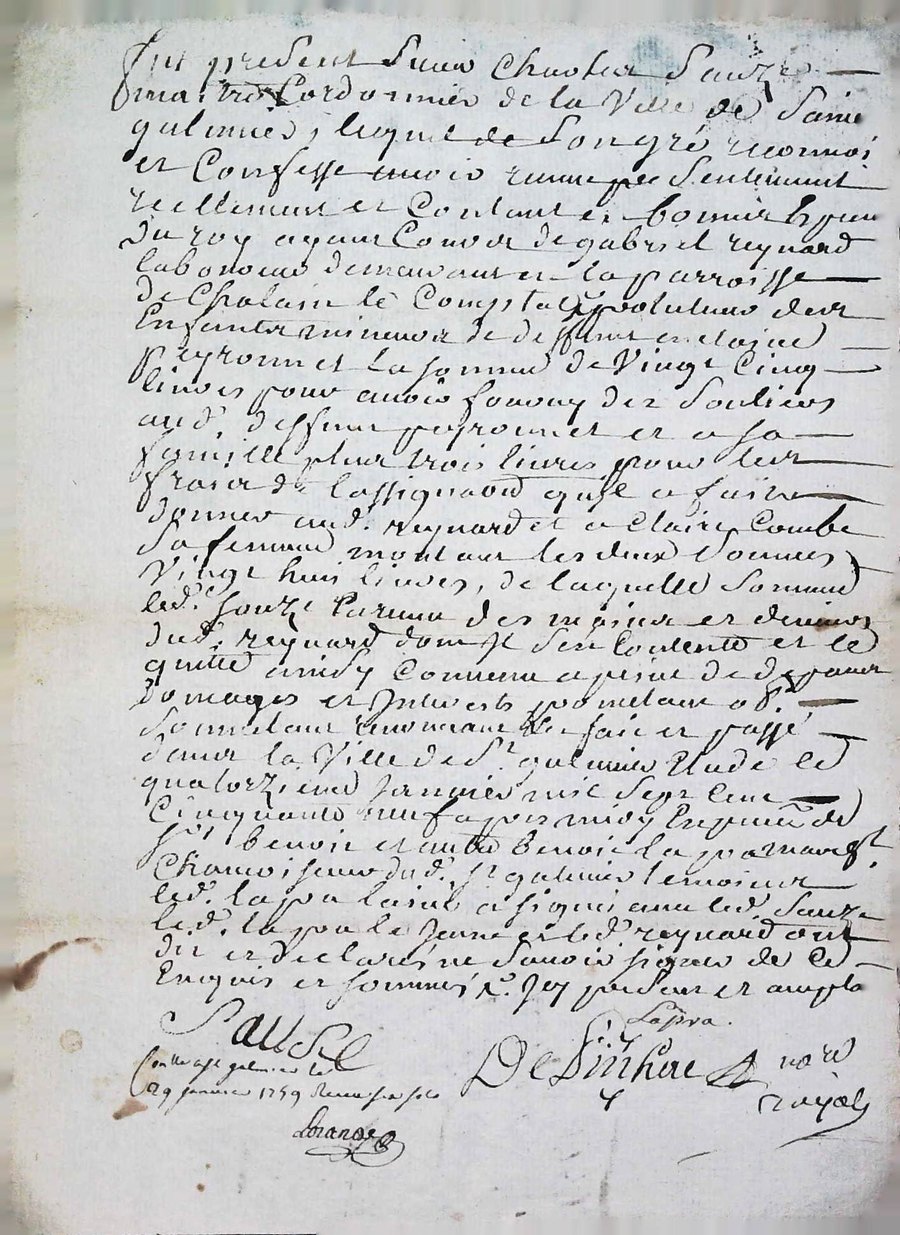 fut present Sieur Charles Sauze
maitre Cordonnier de la Ville de Saint
galmier, lequel de Son gré reconnoi
et Confesse avoir reseu presentement
reellement et Contant en bonnes Espesse
du roy ayant Cour de gabriel reynard
laboureur demeurant en la parroisse
de Chalain le Comptal des
Enfants mineurs de deffunt
peyronnet La somme de Vingt Cinq
livres pour avoir fourny des Souliers
aud. deffunt peyronnet et a sa
famille plus trois livres pour les
fraix de l'assignaõn quil a faite
donner aud. reynard et a Claire Combe
Sa femme montant les deux Sommes
Vingt huit livres, de laquelle Somme
led. Sauze
dud. reynard dont Il s'en Contente et le
quitte ainsy Comme a peine de depans
domages et Interests prometant obt.
Soumetant renonceant &c fait et passé
dans la Ville de St. galmier Etude le
quatorzieme Janvier mil Sept Cent
Cinquante neuf apres midy En presence de
Sr. benoit et autre Benoit lapra
Chamoiseurs dud. St galmier temoins
led. lapra laisné a signé avec led. Sauze
led. lapra le Jeune et led. reynard ont
dit et declaré ne Savoir signer de Ce
Enquis et sommés &c.
Lapra.
Sauze
DeSinhac nore
royal
Conlle a St galmier le
29 janvier 1759 Receu